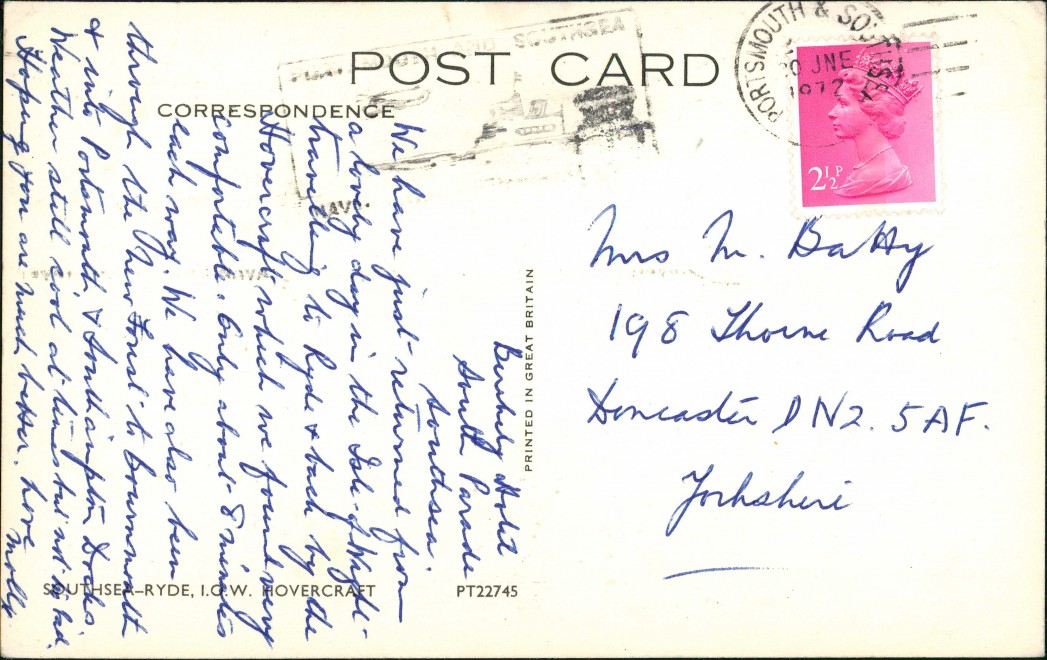 POST CARD
CORRESPONDENCE
PORTSMOUTH AND SOUTHSEA
NAVY.
PORTSMOUTH & SOUTHSEA
20 JNE
1972
2½P
Hotel
South Parade
Southsea.
We have just returned from
a lovely day in the Isle-of-Wight-
travelling to Ryde & back by the
Hovercraft which we found very
comfortable. Only about 8 minutes
each way. We have also been
through the New Forest to Bournmouth
& into Portsmouth & Southampton Docks.
Weather still cool at times but not too bad.
Hoping you are much better. Love
Molly
Mrs M. Batty
198 Thorne Road
Doncaster DN2. 5AF.
Yorkshire
PRINTED IN GREAT BRITAIN
SOUTHSEA–RYDE, I.O.W. HOVERCRAFT
PT22745